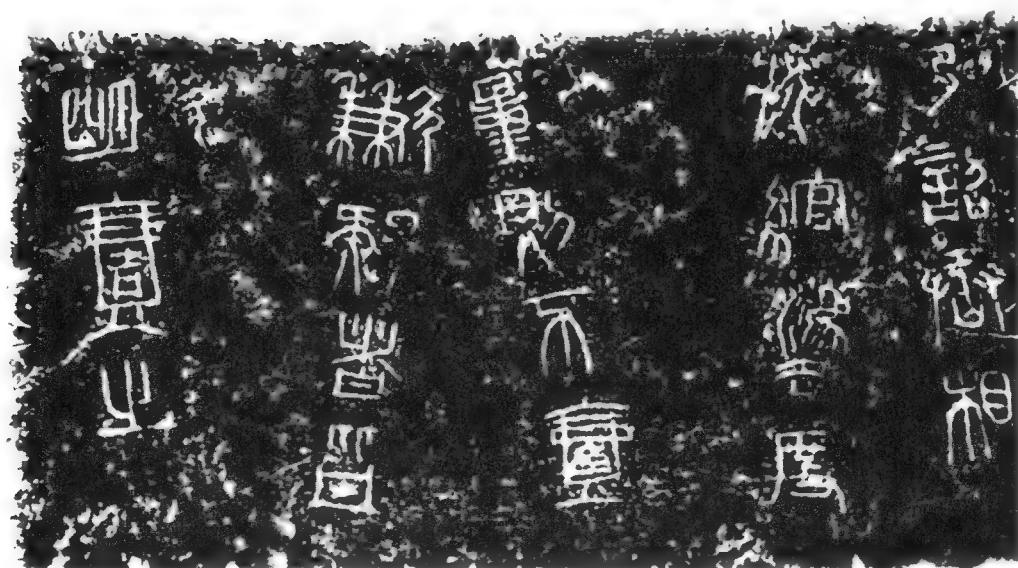 乃詔丞相
狀綰灋度
量則不壹
歉疑者皆
明壹之